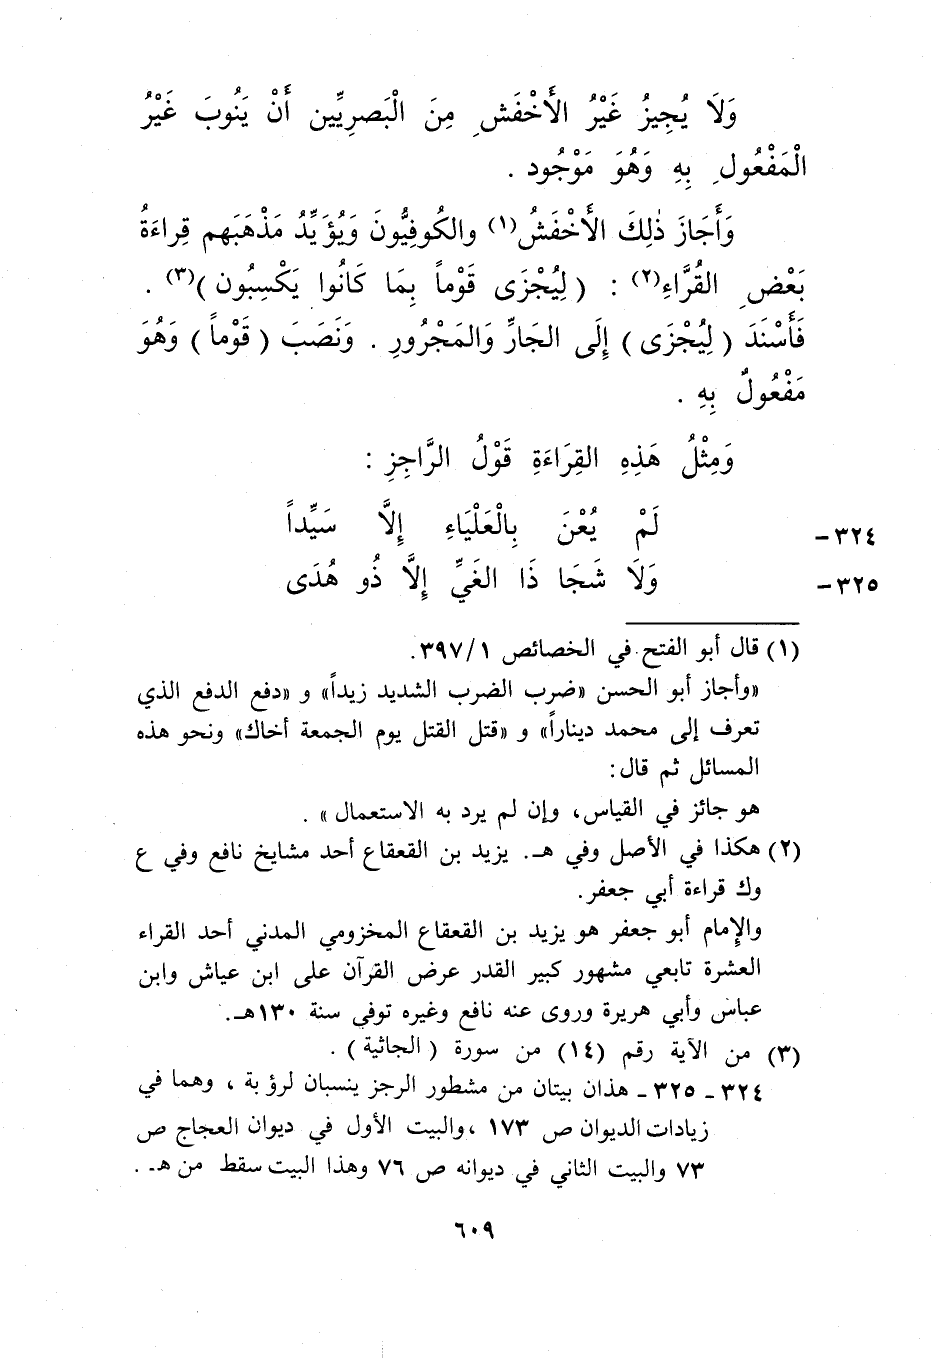 وَلَا يُجِيزُ غَيْرُ الأَخْفَشِ مِنَ الْبَصرِيِّين أَنْ يَنُوبَ غَيْرُ
الْمَفْعُولِ بِهِ وَهُوَ مَوْجُود .
وَأَجَازَ ذٰلِكَ الأَخْفَشُ(١) والكُوفِيُّونَ وَيُؤَيِّدُ مَذْهَبَهم قِراءَةُ
بَعْضِ القُرَّاءِ(٢) : ( لِيُجْزَى قَوْماً بِمَا كَانُوا يَكْسِبُون )(٣) .
فَأَسْنَدَ ( لِيُجْزَى ) إِلَى الجَارِّ وَالمَجْرُورِ . وَنَصَبَ ( قَوْماً ) وَهُوَ
مَفْعُولٌ بِهِ .
وَمِثْلُ هَذِهِ القِرَاءَةِ قَوْلُ الرَّاجِزِ :
٣٢٤- لَمْ يُعْنَ بِالْعَلْيَاءِ إِلَّا سَيِّداً
٣٢٥- وَلَا شَجَا ذَا الغَيِّ إِلَّا ذُو هُدَى
(١) قال أبو الفتح في الخصائص ٣٩٧/١.
«وأجاز أبو الحسن «ضرب الضرب الشديد زيداً» و «دفع الدفع الذي
تعرف إلى محمد ديناراً» و «قتل القتل يوم الجمعة أخاك» ونحو هذه
المسائل ثم قال:
هو جائز في القياس، وإن لم يرد به الاستعمال » .
(٢) هكذا في الأصل وفي هـ. يزيد بن القعقاع أحد مشايخ نافع وفي ع
وك قراءة أبي جعفر.
والإمام أبو جعفر هو يزيد بن القعقاع المخزومي المدني أحد القراء
العشرة تابعي مشهور كبير القدر عرض القرآن على ابن عياش وابن
عباس وأبي هريرة وروى عنه نافع وغيره توفي سنة ١٣٠هـ.
(٣) من الآية رقم (١٤) من سورة ( الجاثية ) .
٣٢٤ - ٣٢٥ - هذان بيتان من مشطور الرجز ينسبان لرؤبة ، وهما في
زيادات الديوان ص ١٧٣ ،والبيت الأول في ديوان العجاج ص
٧٣ والبيت الثاني في ديوانه ص ٧٦ وهذا البيت سقط من هـ .
٦٠٩